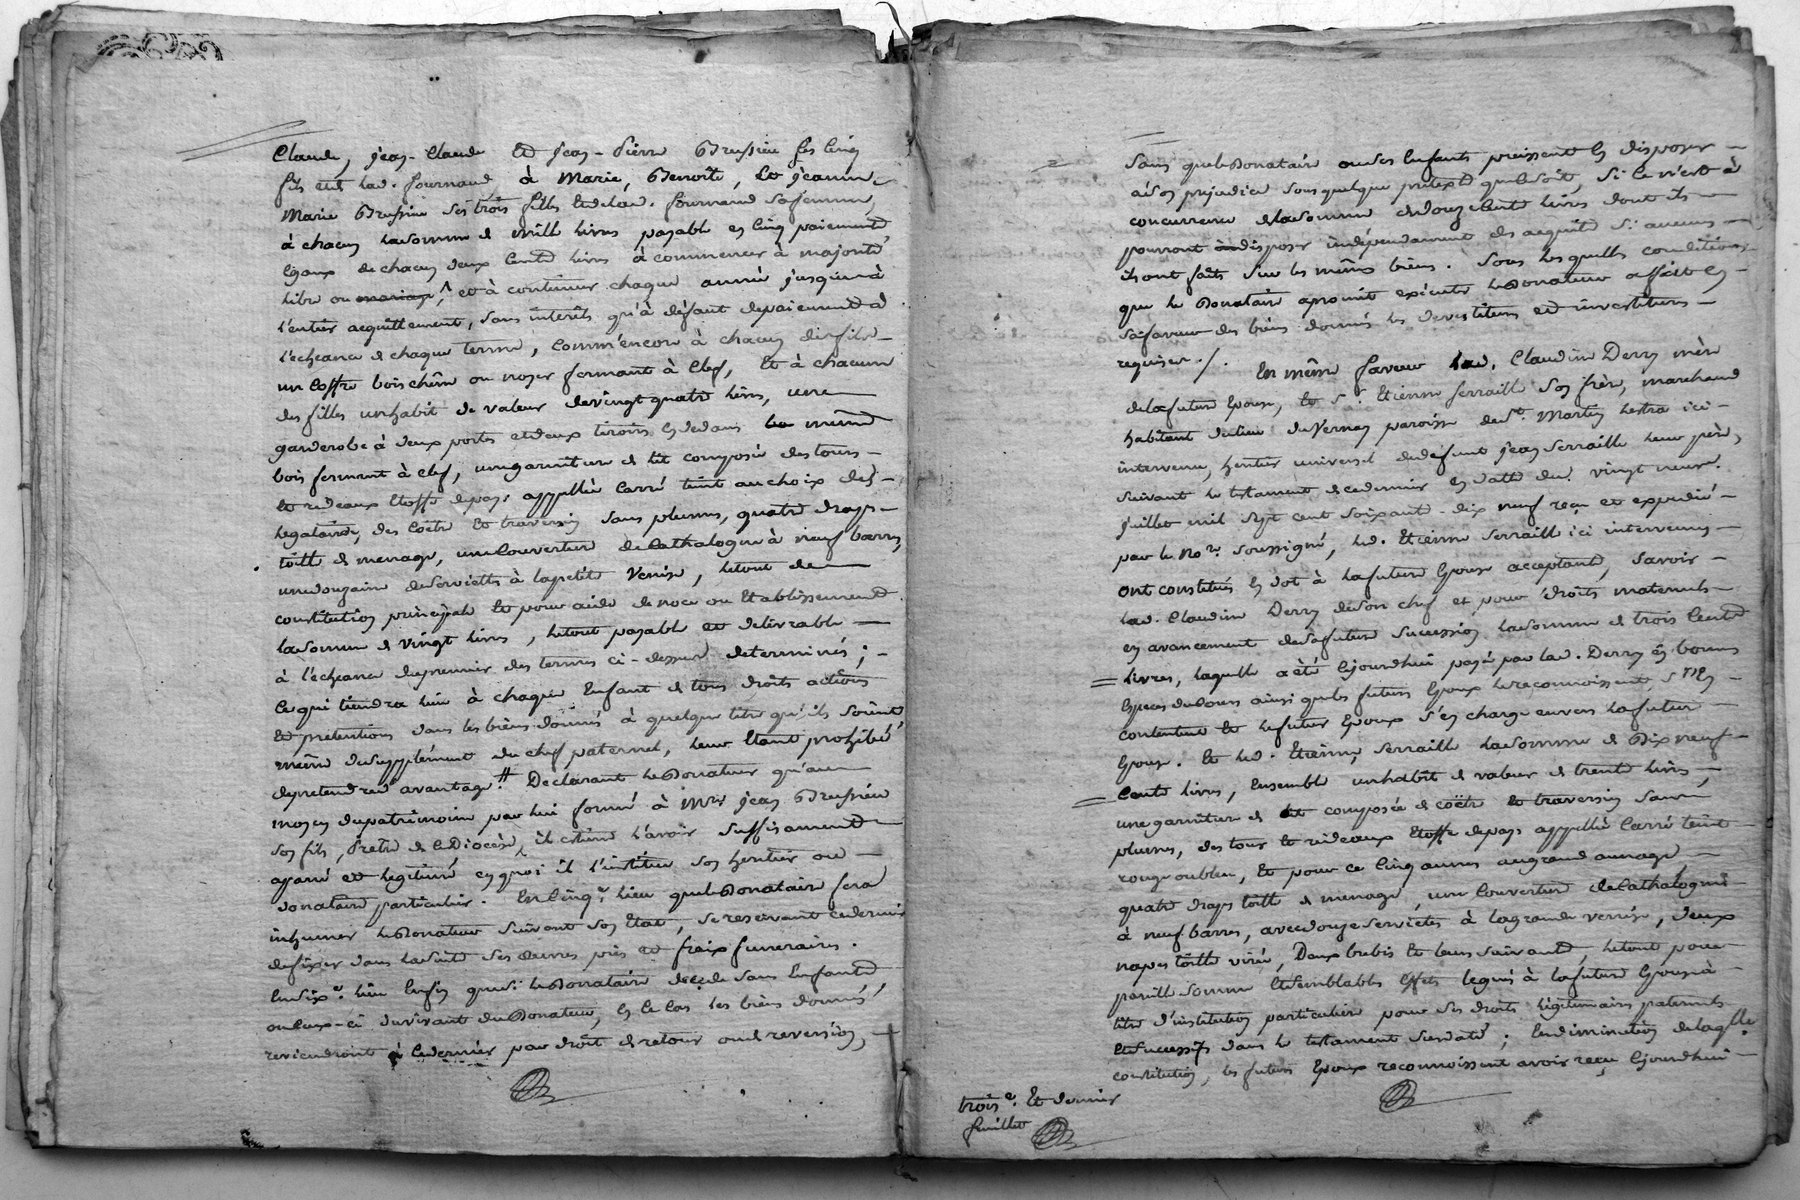 Claude, jean-Claude et jean-pierre Brussieu ses cinq
fils et de lad. fournand, à Marie, Benoite, et jeanne
Marie Brussieu ses trois filles et de lad. fournand sa femme,
à chacun la somme de mille livres payable en cinq paiements
égaux de chacun deux cents livres à commencer à majorité
libre ou mariage, et à continuer chaque année jusques à
l'entier acquittement, sans intérêts qu'à défaut de paiement à
l'echéance de chaque terme, comm'encore à chacun des fils
un coffre bois chêne ou noyer fermant à clef, et à chacune
des filles un habit de valeur de vingt quatre livres, une
garderobe à deux portes et deux tiroirs en dedans le même
bois fermant à clef, une garniture de lit composée des tours
et rideaux étoffe de pays appellée carré teint au choix des
legataires, des coëtre et traversin sans plumes, quatre draps
toille de menage, une couverture de Cathalogne à neuf barres,
une douzaine de serviettes à la petite Venise, le tout de
constitution principale et pour aide de noce ou Etablissement
la somme de vingt livres, le tout payable et delivrable
à l'echéance du premier des termes ci-dessus determinés;
ce qui tiendra lieu à chaque Enfant de tous droits actions
et pretentions dans les biens donnés à quelque titre qu'ils soient
même de supplément du chef paternel, leur étant prohibé
de pretendre d'avantage. # Declarant le Donateur qu'au
moyen du patrimoine par lui formé à Mre jean Brussieu
son fils, prêtre de ce Diocèse, il estime l'avoir suffisament
apané et legitimé en quoi il l'institue son heritier ou
donataire particulier. En cinqe. lieu que le Donataire fera
inhumer le Donateur suivant son état, se reservant ce dernier
de fixer dans la suite ses œuvres pies et fraix funeraires.
En sixe. lieu Enfin que si le Donataire decede sans Enfants
ou ceux-ci du vivant du Donateur, en ce cas les biens donnés,
reviendront à ce dernier par droit de retour ou de reversion,
sans que le Donataire ou ses Enfants puissent en disposer
à son prejudice sous quelque pretexte que ce soit, si ce n'est à
concurrence de la somme de douze cents livres dont ils
pourront disposer indépendament des acquits si aucuns
ils ont faits sur les mêmes biens. Sous lesquelles conditions
que le Donataire a promis exécuter le Donateur s'est en
sa faveur des biens donnés les devestitures et investitures
requises ./. En même faveur lad. Claudine Derry mère
de la future Epouse, et Sr. Etienne ferraille son frère, marchand
habitant du lieu du Vernay paroisse de St. Martin lestra ici
intervenu, heritier universel de defunt jean ferraille leur père,
suivant le testament de ce dernier en datte du vingt neuf
juillet mil sept cent soixante-dix neuf reçu et expedié
par le nore. soussigné, led. Etienne ferraille ici intervenu
ont constitués en dot à la future Epouse acceptante, savoir
lad. Claudine Derry de son chef et pour droits maternels
en avancement de sa future succession la somme de trois cents
livres, laquelle a été cejourdhui payée par lad. Derry en bonnes
especes de cours ainsi que les futurs Epoux le reconnoissent, s'en
contentent et le futur Epoux s'en charge envers la future
Epouse. Et led. Etienne ferraille la somme de Dix neuf
cents livres, Ensemble un habit de valeur de trente livres,
une garniture de lit composée de coëtre et traversin sans
plumes, des tour et rideaux étoffe de pays appellée carré teint
rouge ou bleu, et pour ce cinq aunes au grand aunage,
quatre draps toille de menage, une couverture de Cathalogne
à neuf barres, avec douze serviettes à la grande venise, deux
napes toille virée, Deux brebis et leur suivant, le tout pour
pareille somme et semblables effets legués à la future Epouse à
titre d'institution particuliere pour ses droits légitimaires paternels
et successifs dans le testament susdaté; En diminution de laqlle
constitution, les futurs Epoux reconnoissent avoir reçu cejourdhui
troise. et dernier
feuillet